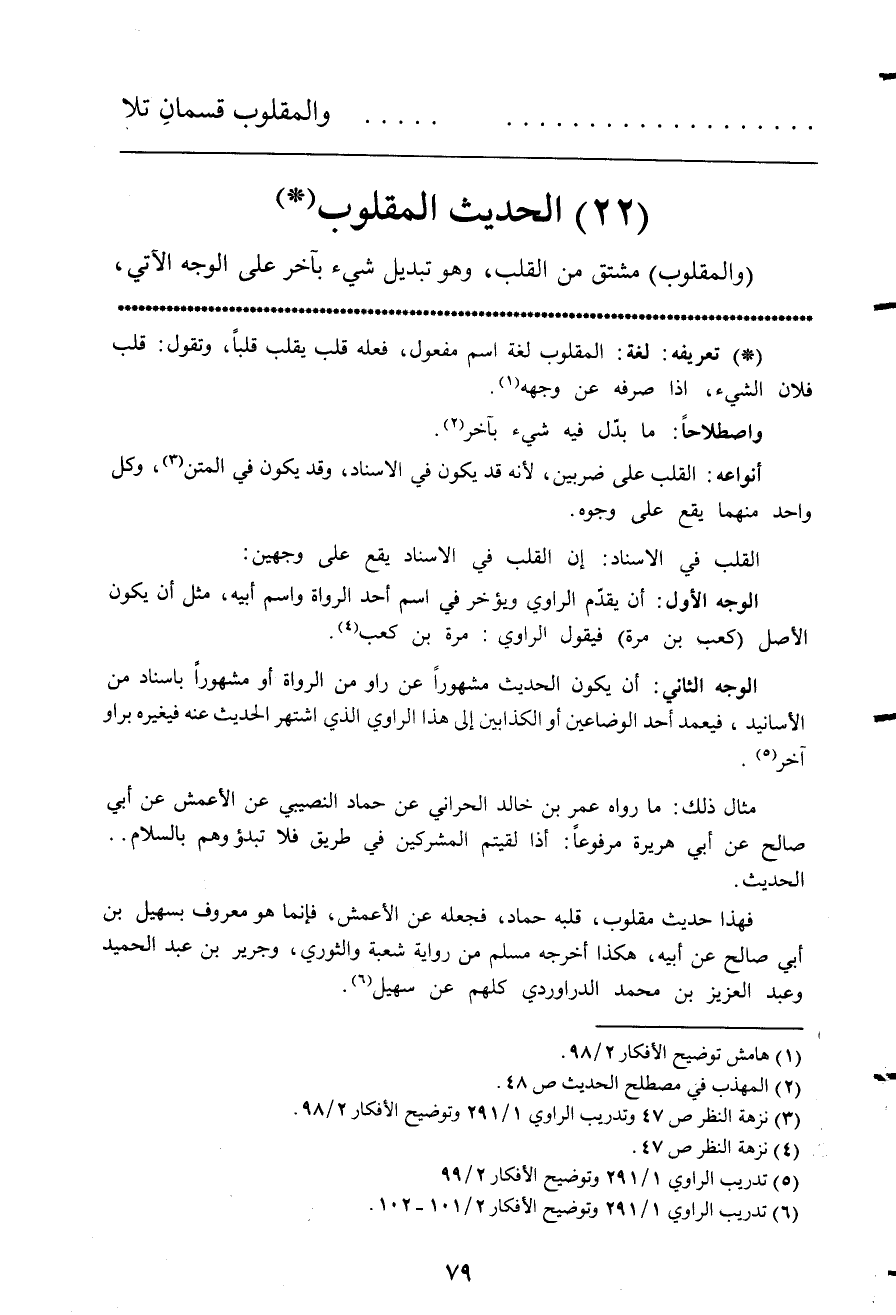 . . . . . . . . . . . . . . . . . . . . . . . والمقلوب قسمانِ تلا
(٢٢) الحديث المقلوب(*)
(والمقلوب) مشتق من القلب، وهو تبديل شيء بآخر على الوجه الآتي،
(*) تعريفه: لغة: المقلوب لغة اسم مفعول، فعله قلب يقلب قلباً، وتقول: قلب
فلان الشيء، اذا صرفه عن وجهه(١).
واصطلاحاً: ما بدّل فيه شيء بآخر(٢).
أنواعه: القلب على ضربين، لأنه قد يكون في الاسناد، وقد يكون في المتن(٣)، وكل
واحد منهما يقع على وجوه.
القلب في الاسناد: إن القلب في الاسناد يقع على وجهين:
الوجه الأول: أن يقدّم الراوي ويؤخر في اسم أحد الرواة واسم أبيه، مثل أن يكون
الأصل (كعب بن مرة) فيقول الراوي : مرة بن كعب(٤).
الوجه الثاني: أن يكون الحديث مشهوراً عن راو من الرواة أو مشهوراً باسناد من
الأسانيد ، فيعمد أحد الوضاعين أو الكذابين إلى هذا الراوي الذي اشتهر الحديث عنه فيغيره براو
آخر(٥) .
مثال ذلك: ما رواه عمر بن خالد الحراني عن حماد النصيبي عن الأعمش عن أبي
صالح عن أبي هريرة مرفوعاً: أذا لقيتم المشركين في طريق فلا تبدؤ وهم بالسلام..
الحديث.
فهذا حديث مقلوب، قلبه حماد، فجعله عن الأعمش، فإنما هو معروف بسهيل بن
أبي صالح عن أبيه، هكذا أخرجه مسلم من رواية شعبة والثوري، وجرير بن عبد الحميد
وعبد العزيز بن محمد الدراوردي كلهم عن سهيل(٦).
(١) هامش توضيح الأفكار ٩٨/٢.
(٢) المهذب في مصطلح الحديث ص ٤٨.
(٣) نزهة النظر ص ٤٧ وتدريب الراوي ٢٩١/١ وتوضيح الأفكار ٩٨/٢.
(٤) نزهة النظر ص ٤٧.
(٥) تدريب الراوي ٢٩١/١ وتوضيح الأفكار ٩٩/٢
(٦) تدريب الراوي ٢٩١/١ وتوضيح الأفكار ١٠١/٢ - ١٠٢.
٧٩